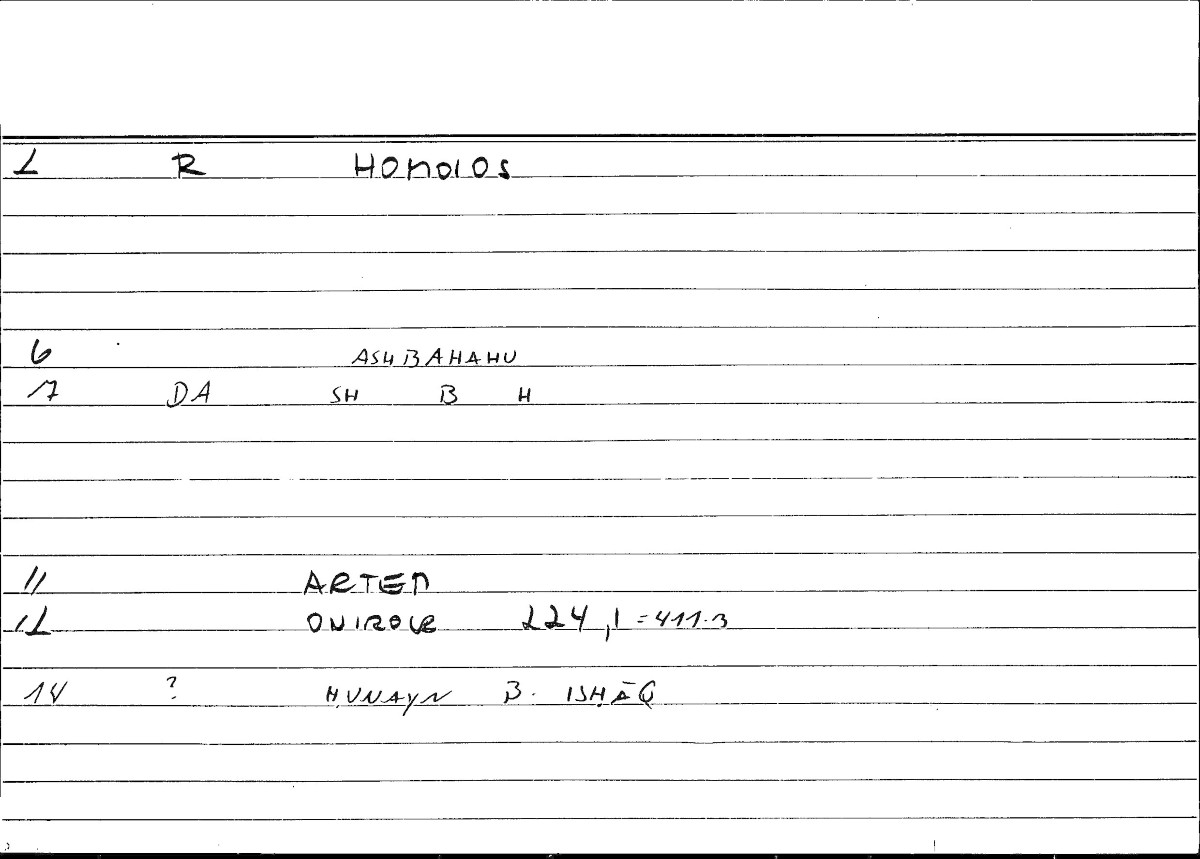 2 R HOMOIOS
6 ASHBAHAHU
7 DA SH B H
11 ARTEM
12 ONIROCR 224,1 = 411.3
14 ? ḤUNAYN B. ISḤĀQ